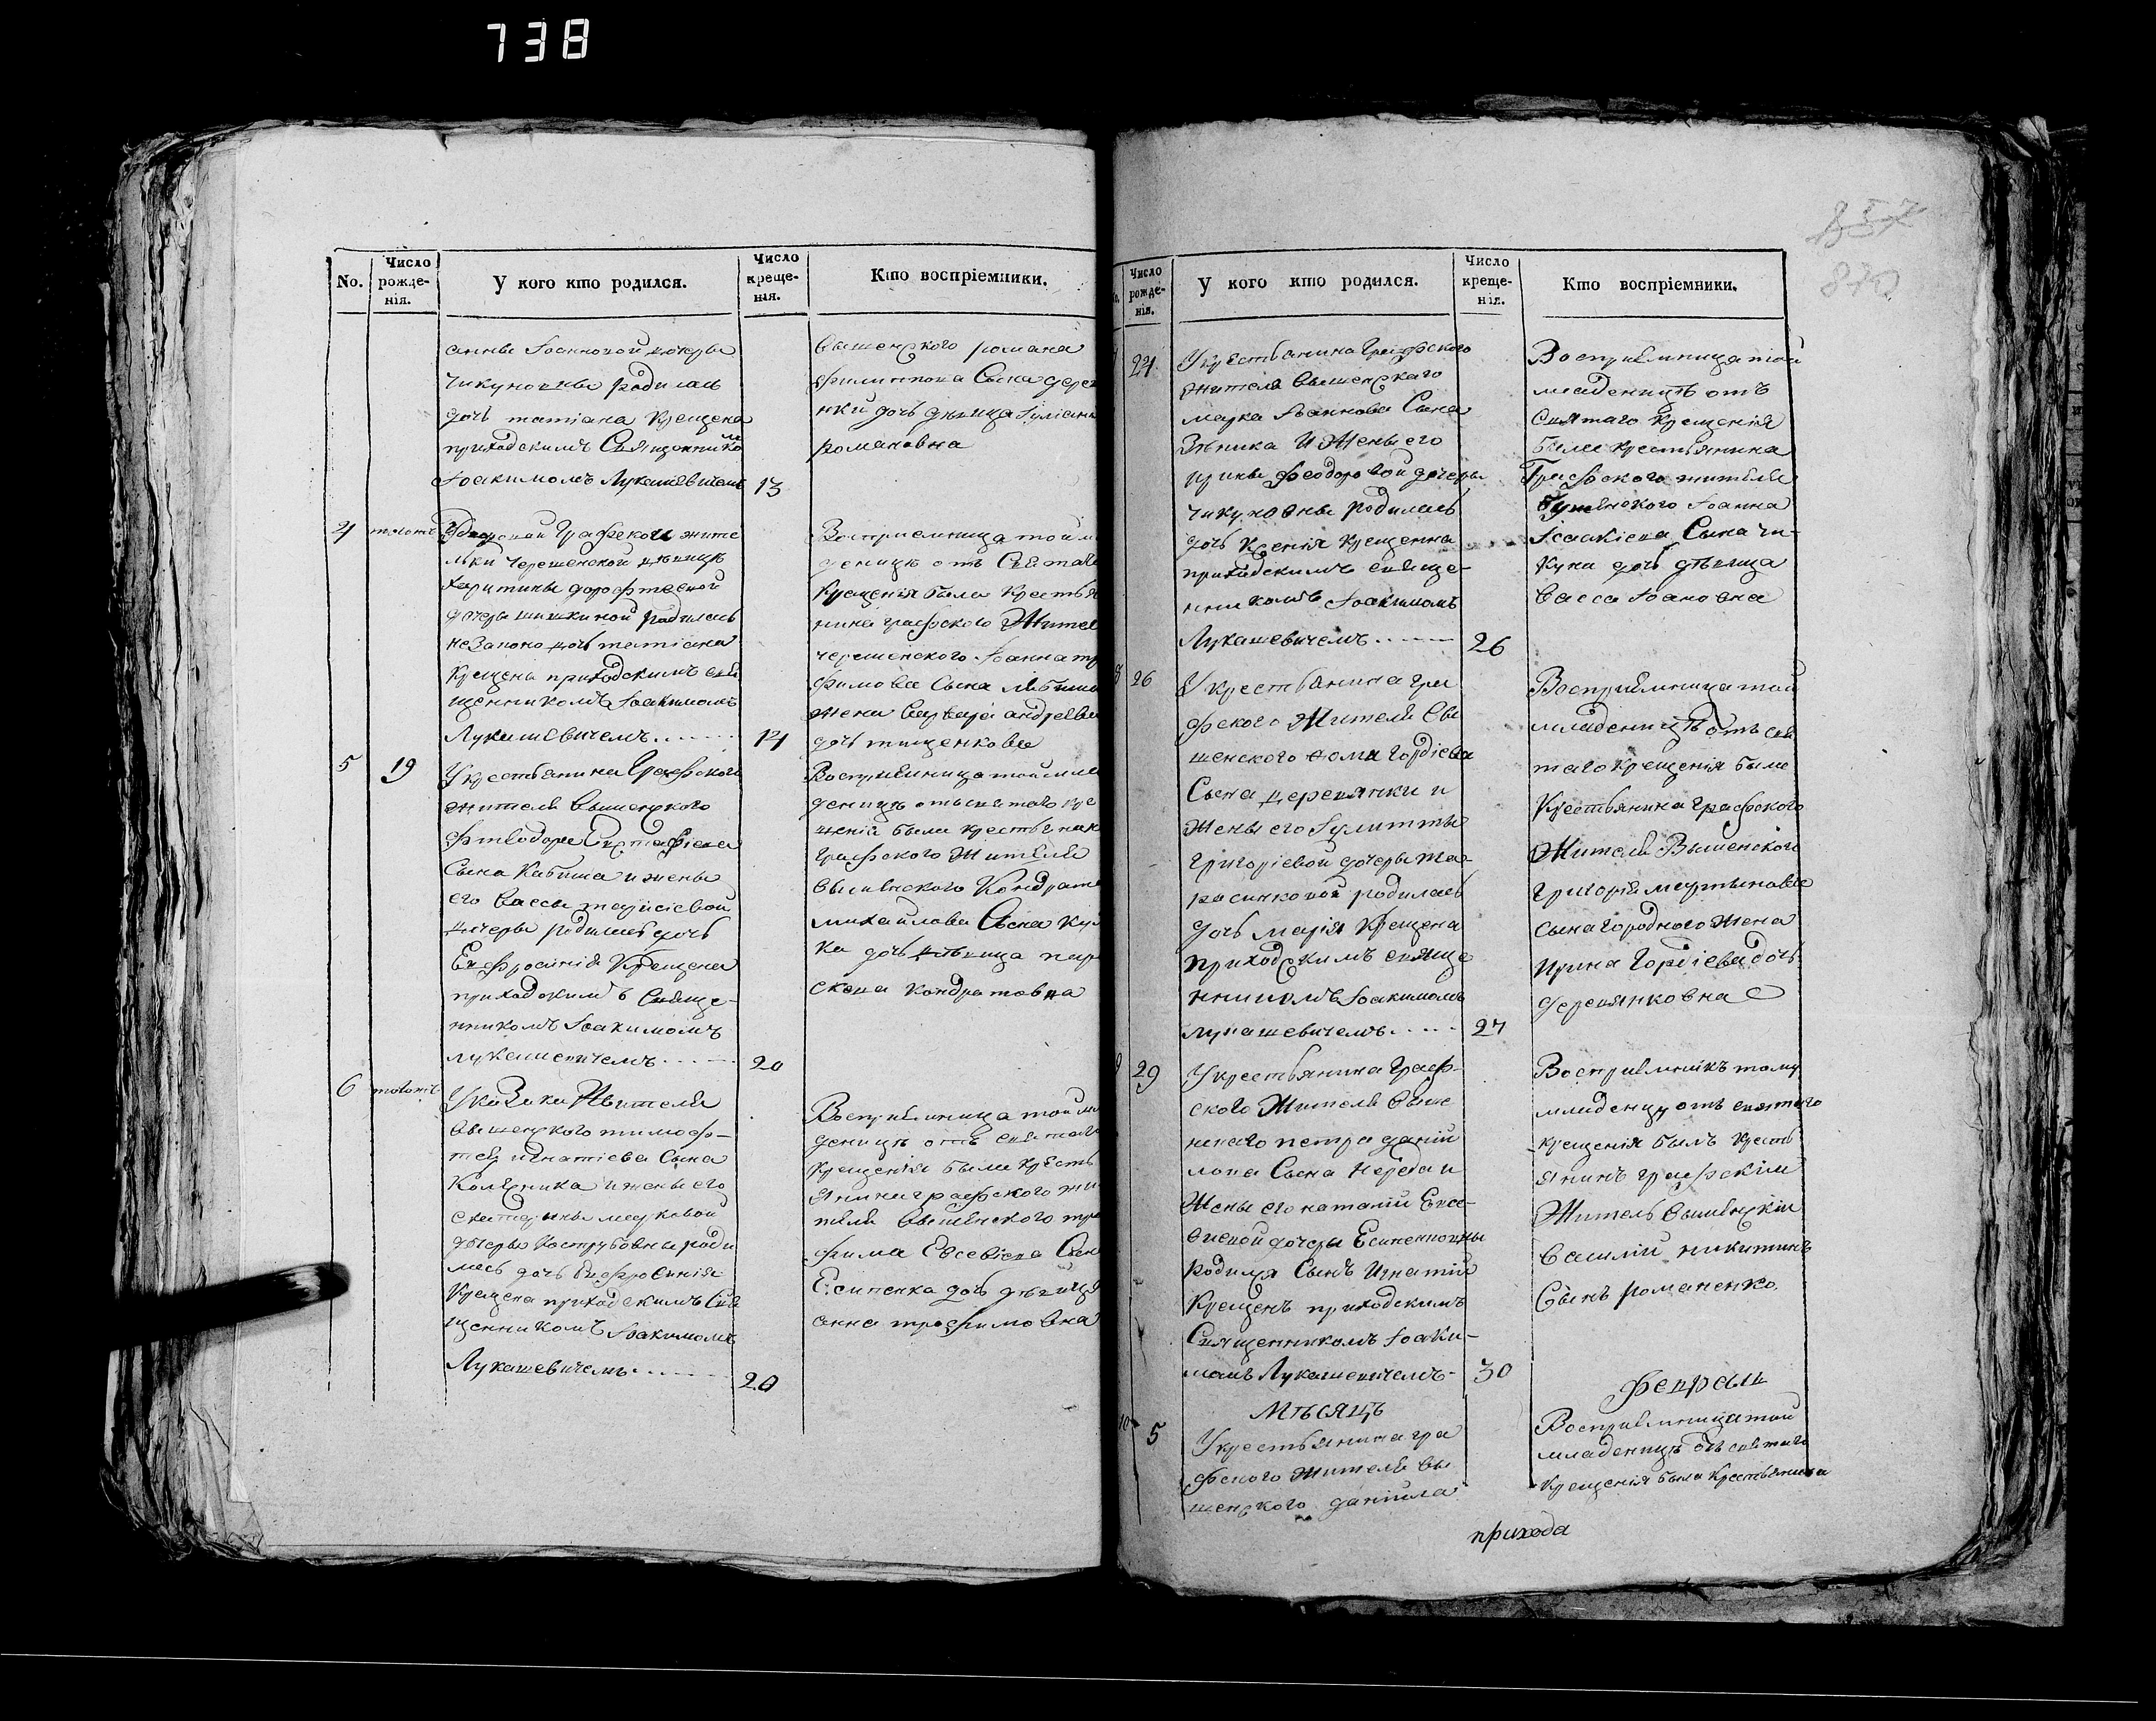 738
No.
Число рожденія.
У кого кто родился.
Число крещенія.
Кто воспріемники.
анны Іоанновой дочеры
чикуновны родилась
дочь татіана крещена
приходскимъ Священником
Іоакимомъ Лукашевичемъ 13
вышенского романа
филиппова Сына дере
нки дочь девица Іуліан
романовна
4 Графской жите
льки черешенской девицы
харитины дорофтеевой
дочеры шишкиной родилась
незаконо дочь татіана
Крещена приходскимъ свя
щенникомъ Іоакимомъ
Лукашевичемъ 14
Восприемница той м
деницы отъ Святаго
Крещенія была крестья
нина графского Жител
черешенского Іоанна тр
фимова Сына
жена андреева
дочь тищенкова
5 19
У крестьянина Графского
жителя Вышенского
фтеодора Евстафіева
Сына Кибиша и жены
его Вассы
дочеры родилась дочь
Евфросинія Крещена
приходскимъ Свяще-
нникомъ Іоакимомъ
лукашевичемъ 20
Восприемница той мла
деницы отъ святого кре
щенія была крестьянин
графского жителя
вышенского Кондрата
михайлова Сына Ку
ка дочь девица пар
скева Кондратовна
6
У казака Жителя
Вышенского тимоф-
тея игнатіева Сына
Колесника и жены его
екатерины марковой
дочеры Кострубовны роди
лась дочь Евфросинія
Крещена приходскимъ Свя
щенникомъ Іоакимомъ
Лукашевичемъ 20
Восприемница той мла
деницы отъ святаго
Крещенія была крестъ
янина графского жи
теля вышенского тро
фима Евсевіева Сын
Есипенка дочь девица
анна трофимовна
857
Число рожденія.
У кого кто родился.
Число крещенія.
Кто воспріемники.
24
У крестьянина Графского
жителя Вышенскаго
марка Іоаннова Сына
и Жены его
ирины феодоровой дочеры
чикуновны родилась
дочь Ксенія крещенна
приходскимъ свяще-
нникомъ Іоакимомъ
Лукашевичемъ 26
Восприемница той
младеницъ отъ
Святаго крещенія
была крестьянина
Графского жителя
Іоанна
Ісаакіева Сына чи-
куна дочь девица
Васса Іоановна
26
У крестьянина гра
фского Жителя Вы
шенского фомы Гордіева
Сына деревянки и
жены его Іулитты
григоріевой дочеры та-
расинковой родилась
дочь марія Крещена
приходскимъ свяще
нникомъ Іоакимомъ
лукашевичемъ 27
Восприемница той
младеницъ отъ свя
таго Крещенія была
Крестьянина графского
Жителя Вышенского
григорія мартынова
сына городного жена
Ирина Гордіева дочь
деревянковна
29
У крестьянина граф-
ского Жителя Выше
нскаго петра даній
лова Сына и
Жены его наталіи Евсе-
віевой дочеры Есипенковны
Родился Сынъ Игнатій
Крещенъ приходскимъ
Священникомъ Іоаки-
момъ Лукашевичемъ 30
Восприемникъ тому
младенцу отъ святого
крещенія былъ крестъ
янинъ графскій
Житель вышенскій
Василій никитинъ
Сынъ романенко.
Мѣсяцъ
феврали
10 5
У крестьянина гра
фского жителя вы
шенского даніила
Восприемница той
младеницъ отъ святаго
крещенія была крестьянина
прихода